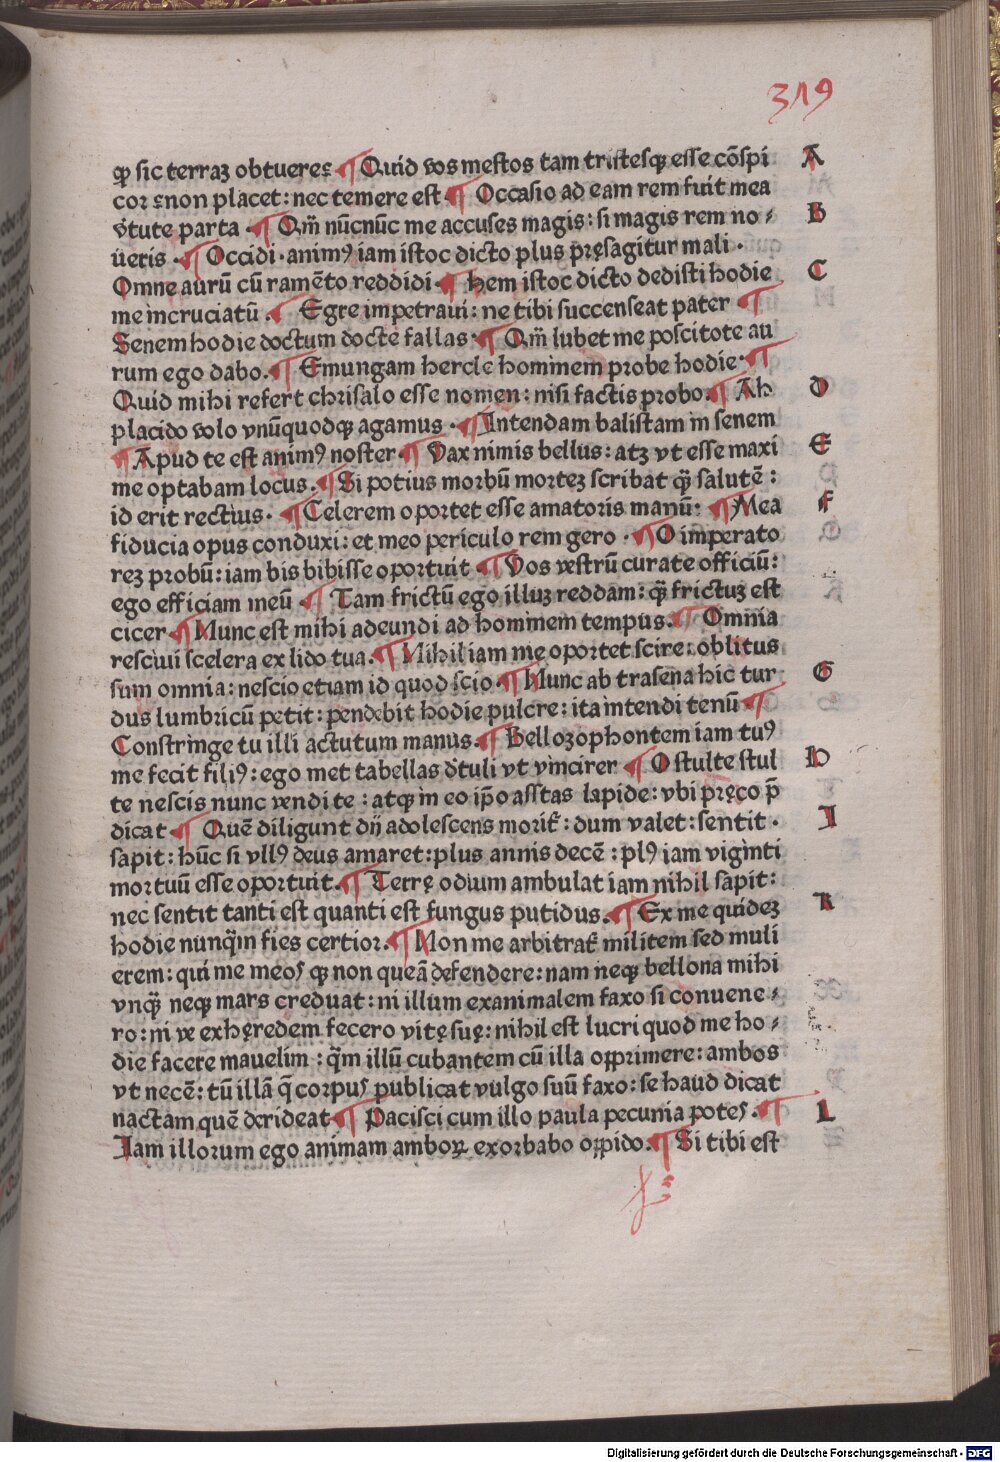 319
ꝙ sic terraꝫ obtueres ¶ Quid vos mestos tam tristesqꝫ esse cōspi A
cor ⁊ non placet: nec temere est ¶ Occasio ad eam rem fuit mea
v̓tute parta . ¶ Qm̄ nūcnūc me accuses magis: si magis rem no⸗ B
ueris . ¶ Occidi . animꝰ iam istoc dicto plus p̄ręsagitur mali .
Omne aurū cū ramēto reddidi . ¶ Hem istoc dicto dedisti hodie C
me incruciatū . ¶ Egre impetraui: ne tibi succenseat pater ¶
Senem hodie doctum docte fallas . ¶ Qm̄ lubet me poscitote au
rum ego dabo. ¶ Emungam hercle hominem probe hodie . ¶
Quid mihi refert chrisalo esse nomen: nisi factis probo. ¶ Ah D
placido volo vnūquodqꝫ agamus . ¶ Intendam balistam in senem
¶ Apud te est animꝰ noster . ¶ Vax nimis bellus: atqꝫ vt esse maxi E
me optabam locus . ¶ Si potius morbū morteꝫ scribat q̄ꝫ salutē :
id erit rectius . ¶ Celerem oportet esse amatoris manū: ¶ Mea F
fiducia opus conduxi: et meo periculo rem gero . ¶ O imperato
reꝫ probū: iam bis bibisse oportuit ¶ Vos vestrū curate officiū:
ego efficiam meū ¶ Tam frictū ego illuꝫ reddam: q̄ꝫ frictuꝫ est
cicer ¶ Nunc est mihi adeundi ad hominem tempus. ¶ Omnia
resciui scelera ex lido tua. ¶ Nihil iam me oportet scire: oblitus
sum omnia: nescio etiam id quod scio . ¶ Nunc ab trasena hic tur G
dus lumbricū petit: pendebit hodie pulcre: ita intendi tenū ¶
Constringe tu illi actutum manus. ¶ Bellozophontem iam tuꝰ
me fecit filiꝰ: ego met tabellas d̓tuli vt vincirer ¶ O stulte stul H
te nescis nunc vendi te : atqꝫ in eo ip̄o asstas lapide: vbi pręco p̄
dicat ¶ Quē diligunt dij adolescens morit᷑: dum valet: sentit . I
sapit: hūc si vllꝰ deus amaret: plus annis decē : plꝰ iam viginti
mortuū esse oportuit. ¶ Terrę odium ambulat iam nihil sapit:
nec sentit tanti est quanti est fungus putidus. ¶ Ex me quideꝫ K
hodie nunq̄ꝫm fies certior. ¶ Non me arbitrat᷑ militem sed muli
erem: qui me meos qꝫ non queā defendere: nam neqꝫ bellona mihi
vnq̄ꝫ neqꝫ mars creduat: ni illum exanimalem faxo si conuene⸗
ro: ni ve exhęredem fecero vitę suę: nihil est lucri quod me ho⸗
die facere mauelim : q̄m illū cubantem cū illa opprimere: ambos
vt necē: tū illā q̄ corpus publicat vulgo suū faxo: se haud dicat
nactam quē derideat ¶ Pacisci cum illo paula pecunia potes . ¶ L
Iam illorum ego animam amboꝝ exorbabo oppido. ¶ Si tibi est
Digitalisierung gefördert durch die Deutsche Forschungsgemeinschaft - DFG